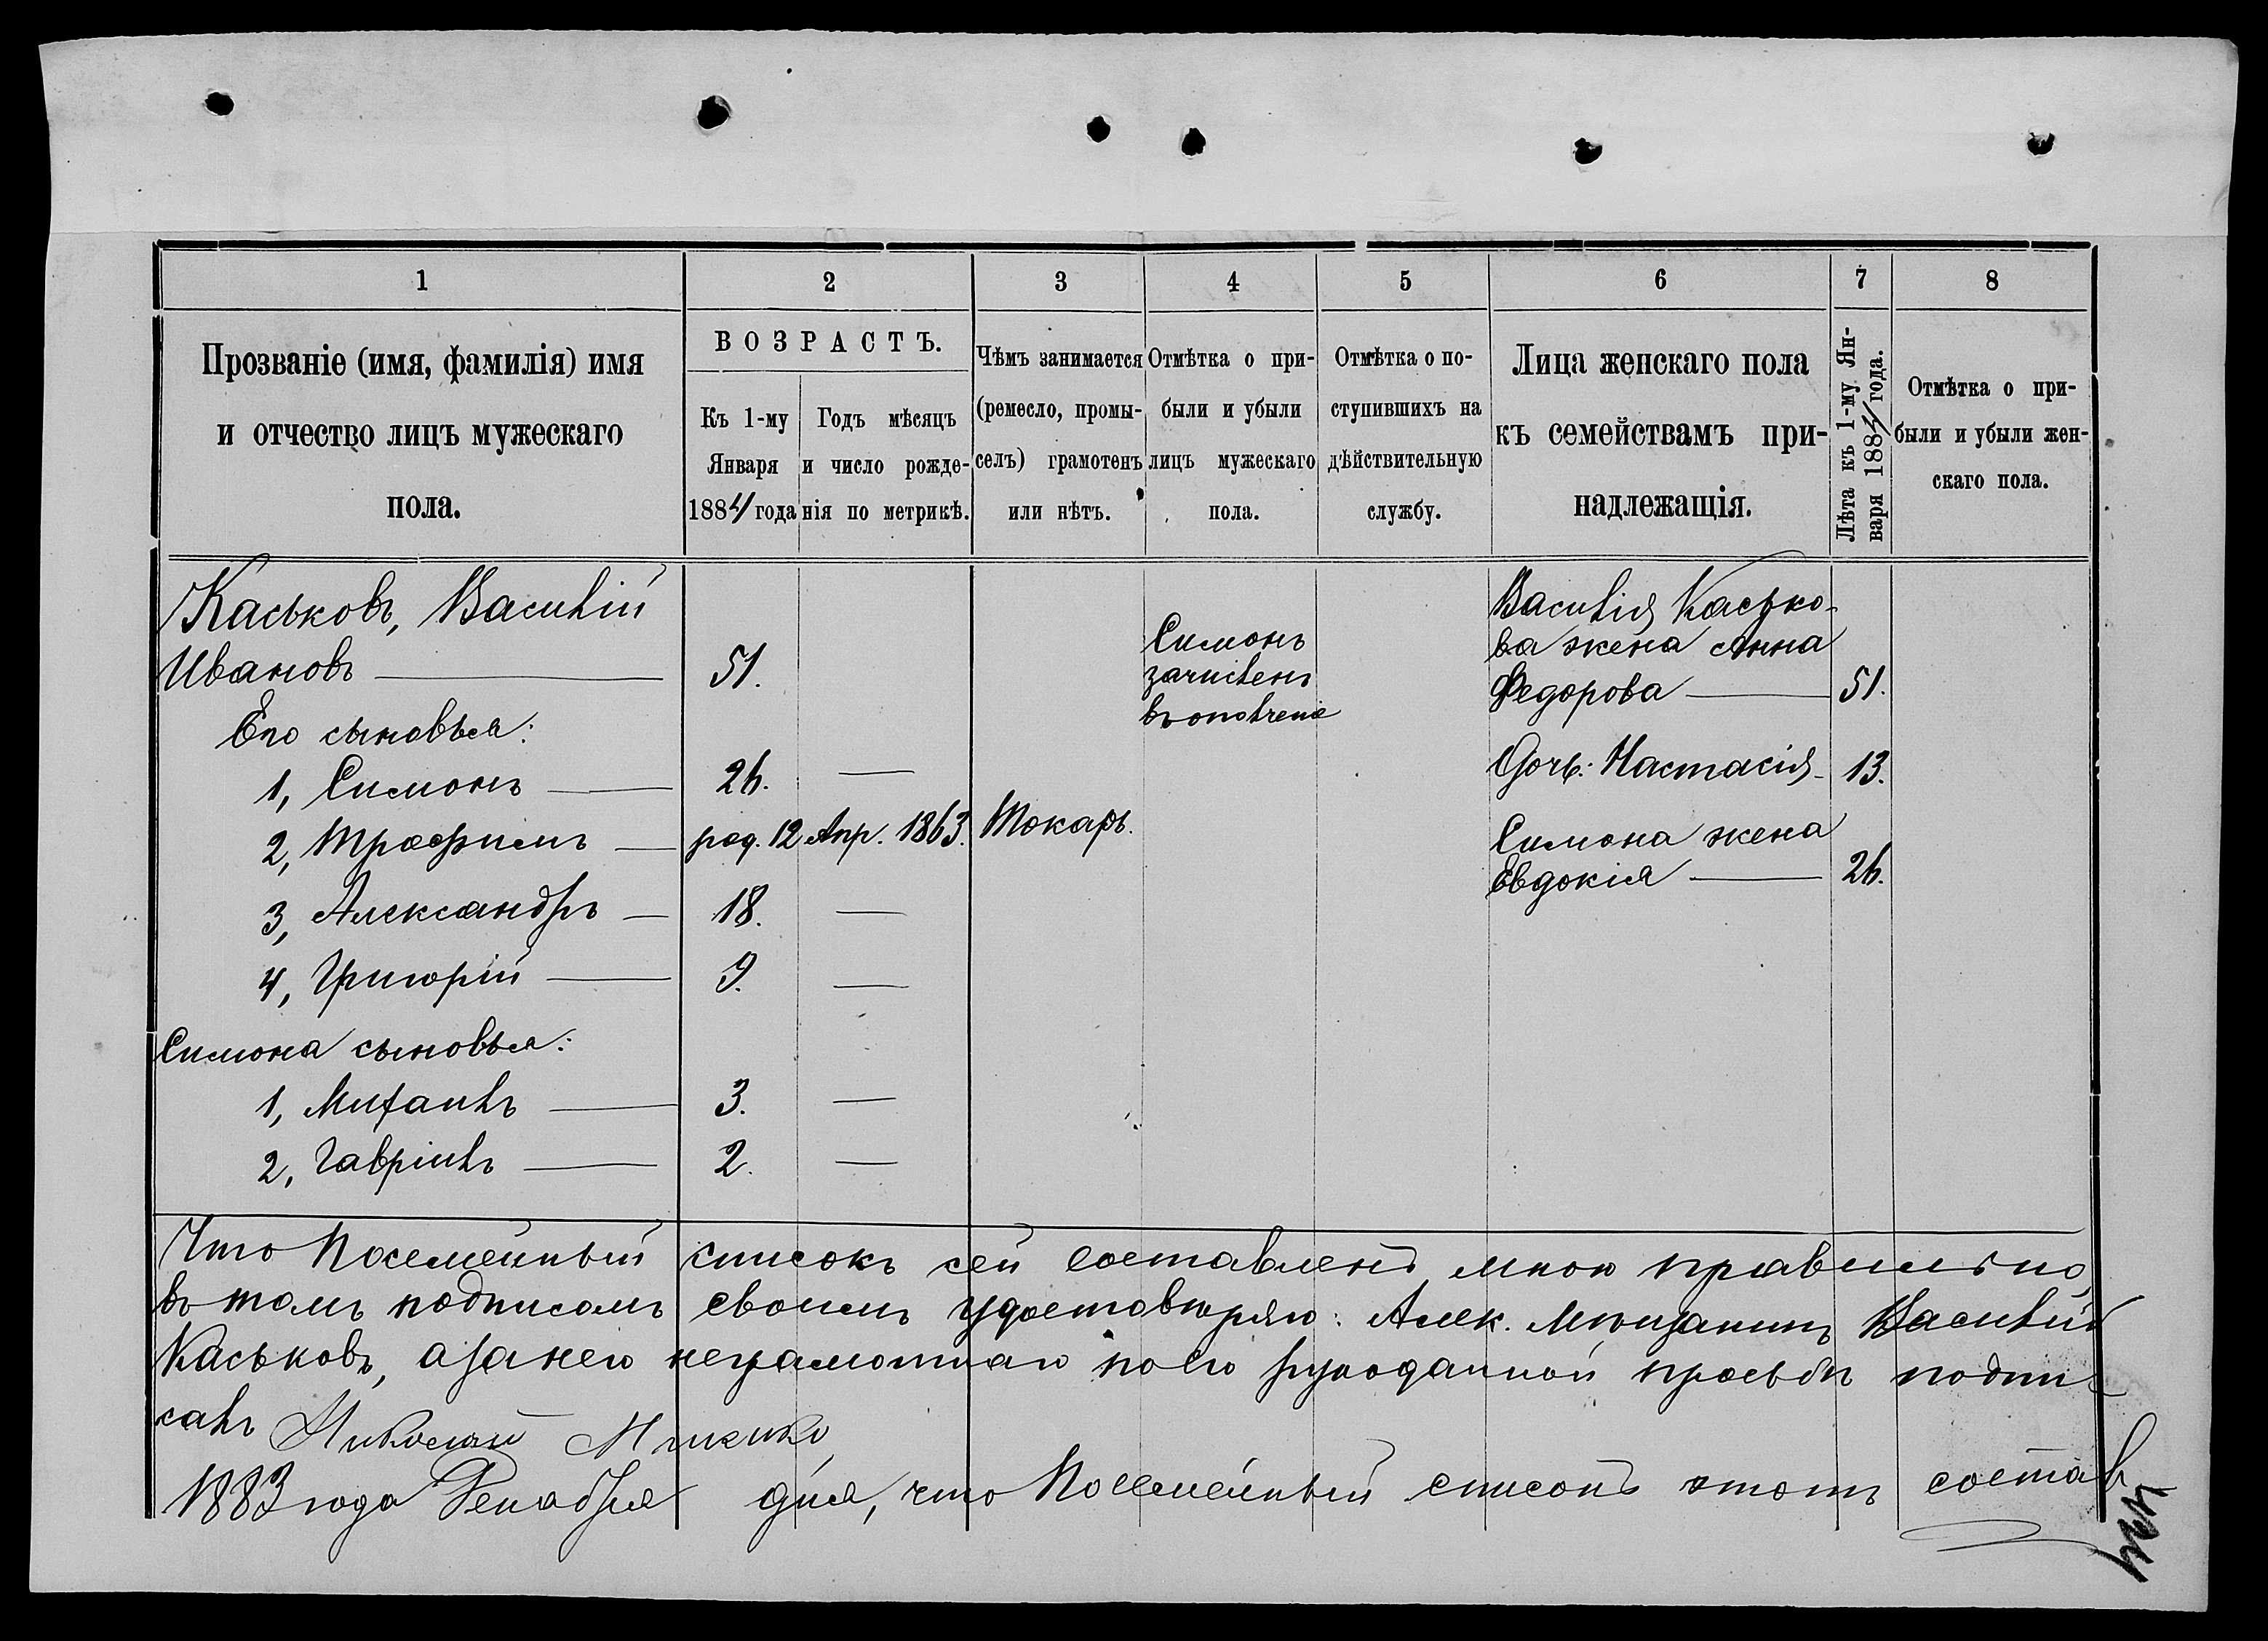 1 2 3 4 5 6 7 8
Прозваніе (имя, фамилія) имя
и отчество лицъ мужескаго
пола.
ВОЗРАСТЪ.
Къ 1-му
Января
1884 года
Годъ мѣсяцъ
и число рожде-
нія по метрикѣ.
Чѣмъ занимается
(ремесло, промы-
селъ) грамотенъ
или нѣтъ.
Отмѣтка о при-
были и убыли
лицъ мужескаго
пола.
Отмѣтка о по-
ступившихъ на
дѣйствительную
службу.
Лица женскаго пола
къ семействамъ при-
надлежащія.
Лѣта къ 1-му Ян-
варя 1884 года.
Отмѣтка о при-
были и убыли жен-
скаго пола.
Каськовъ, Василій
Ивановъ — 51.
Его сыновья:
1, Симонъ — 26. —
2, Трофимъ — род. 12 Апр. 1863. Токарь.
3, Александръ — 18. —
4, Григорій — 9. —
Симона сыновья:
1, Михаилъ — 3. —
2, Гавріилъ — 2. —
Симонъ
зачисленъ
въ ополченіе
Василія Касько-
ва жена Анна
Федорова — 51.
Дочь: Настасія — 13.
Симона жена
Евдокія — 26.
Что Посемейный списокъ сей составленъ мною правильно,
въ томъ подписомъ своимъ удостовѣряю: Алек. Мѣщанинъ Василій
Каськовъ, а за него неграмотнаго по его рукоданной просьбѣ подпи-
салъ Николай
1883 года Декабря дня, что Посемейный списокъ этотъ состав